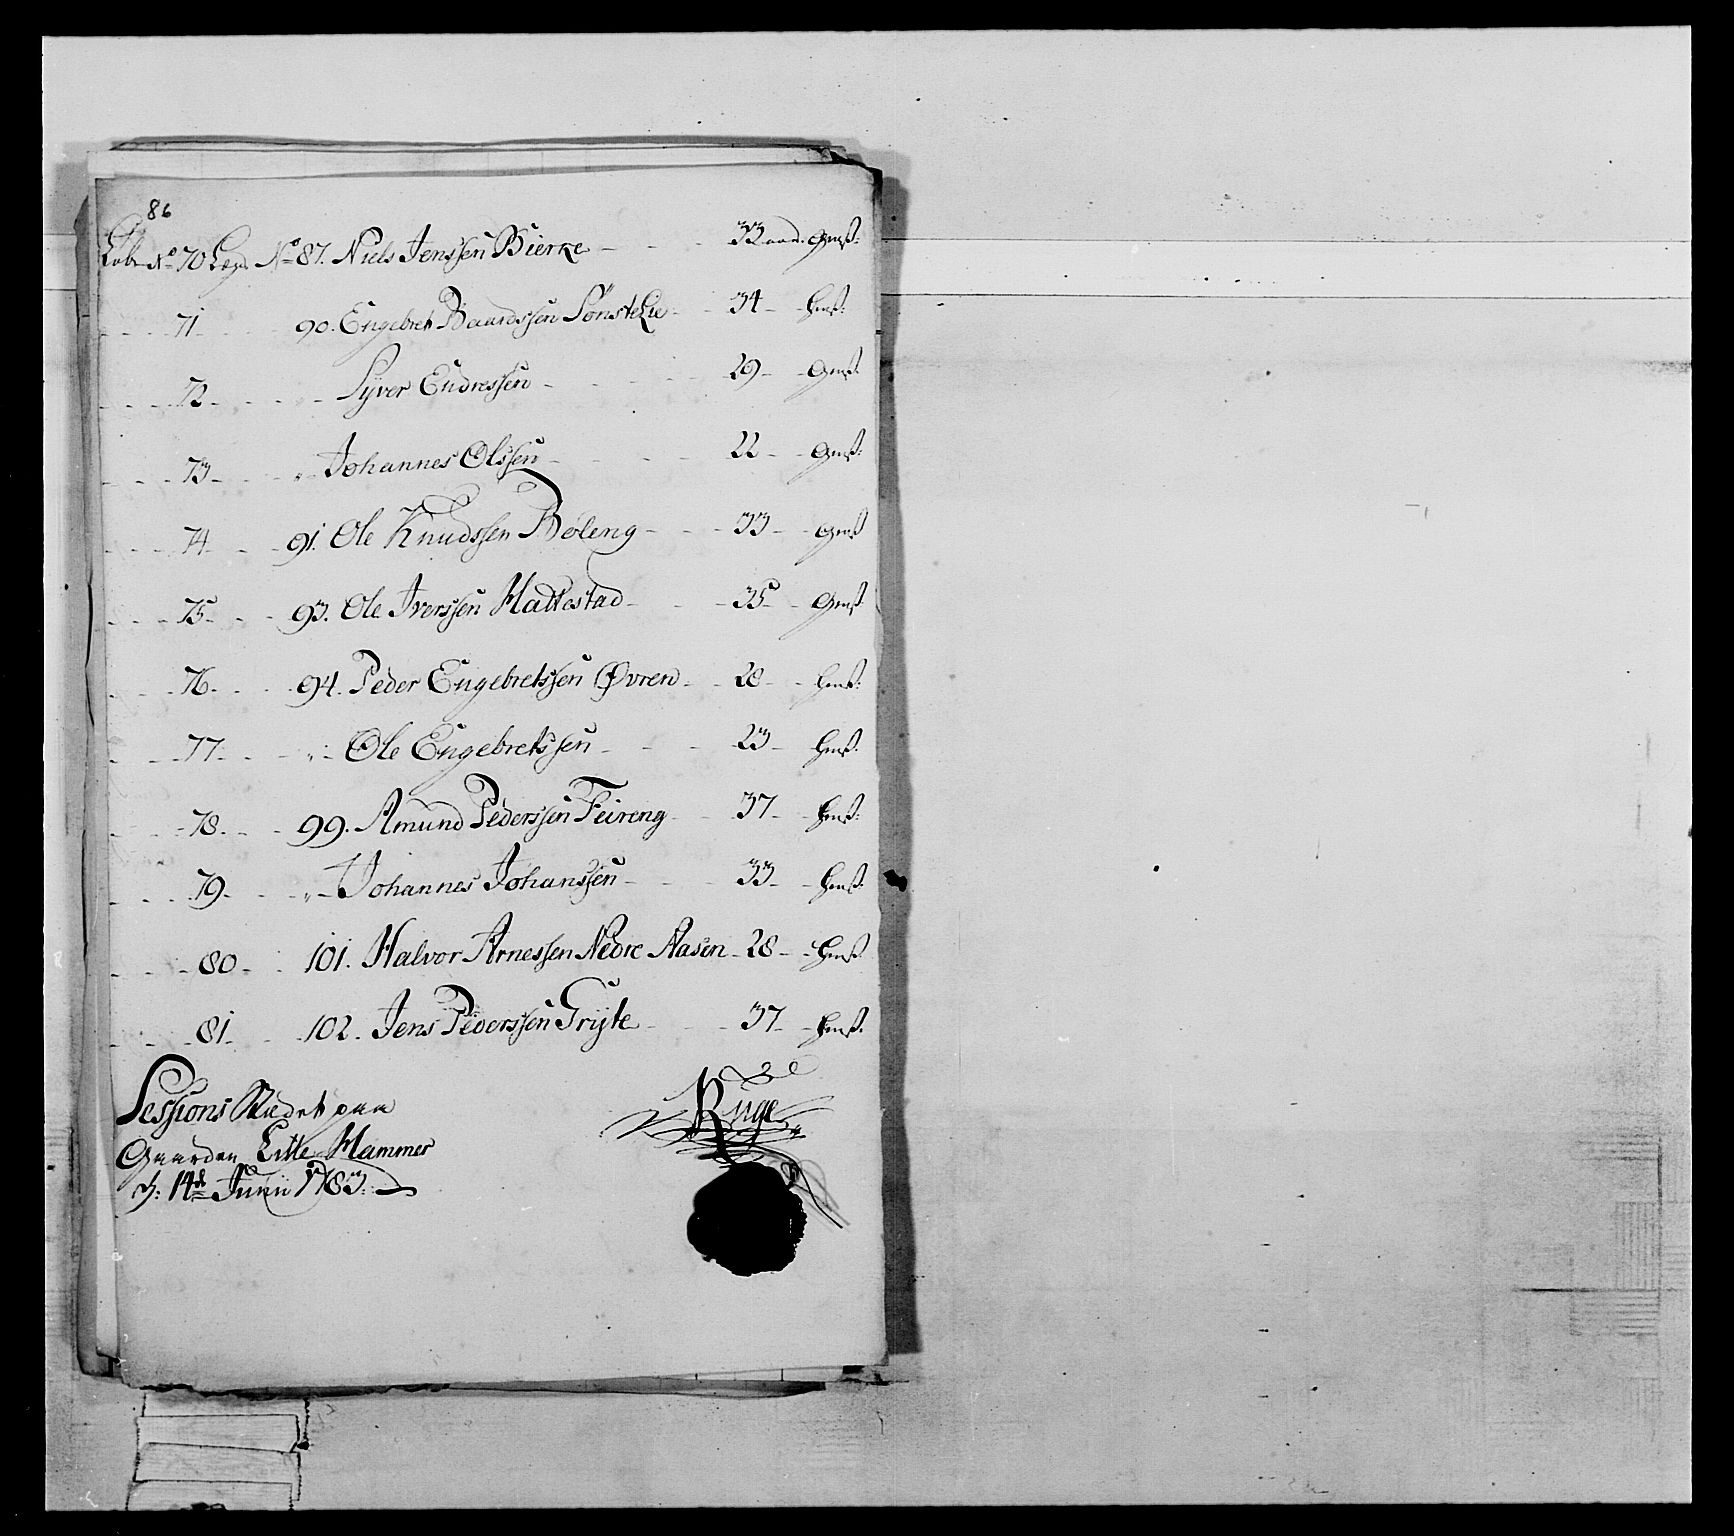 86
Løbe No 70 Læg No 87. Niels Jenssen Bierke - - - 32 aar. Gmß:
71 - - 90. Engebret Baardssen SønsteLie - - 34 - hmß:
72 - - „ - Syver Endressen - - - 29 - Gmß:
73 - - „ - Johannes Olssen - - - 22 - Gmß:
74 - - 91. Ole Knudssen Bøleng - - 33 - Gmß
75 - - 93. Ole Iverssen Hallestad - - - 35 - Gmß
76 - - 94. Peder Engebretssen Øvren - - 28 - hmß:
77 - - „ - Ole Engebretssen - - - 23 - hmß:
78 - - 99. Amund Pederssen Feireng - - 37 - hmß:
79 - - „ - Johannes Johanssen - - - 33 - hmß:
80 - - 101. Halvor Arnessen Nedre Aasen - 28 - hmß:
81 - - 102. Jens Pederssen Tryte - - - 37 - hmß:
Sessions Stædet paa
Gaarden Litle Hammer
d: 14de Junii 1783.
Ruge